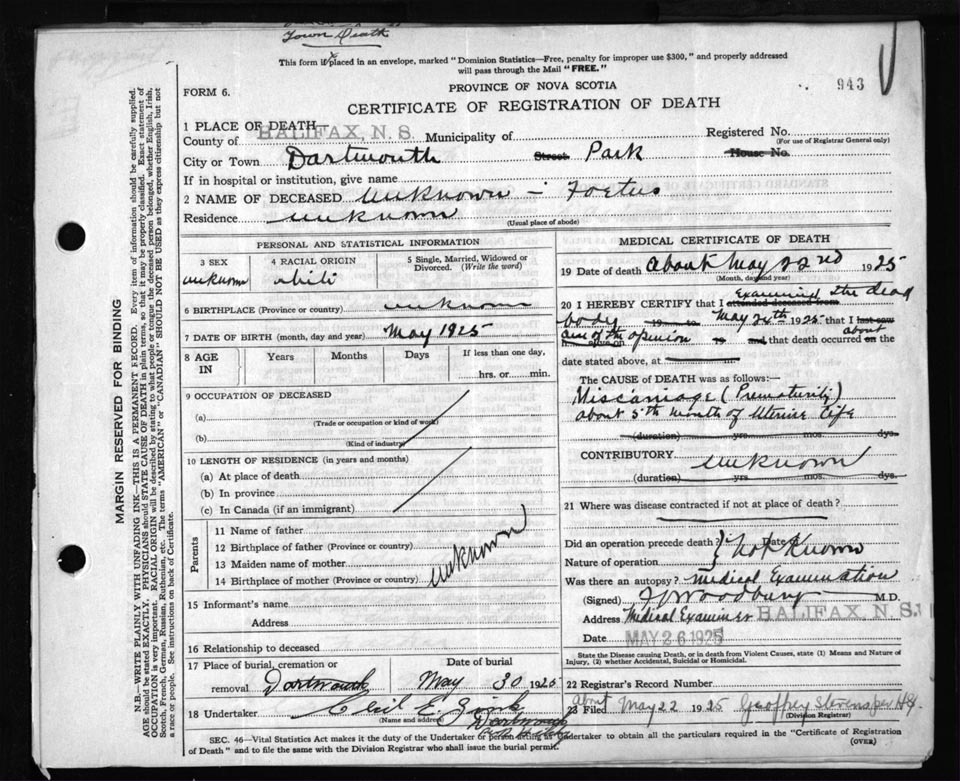 Town Death
This form placed in an envelope, marked "Dominion Statistics—Free, penalty for improper use $300," and properly addressed
will pass through the Mail "FREE."
943
PROVINCE OF NOVA SCOTIA
FORM 6.
CERTIFICATE OF REGISTRATION OF DEATH
1 PLACE OF DEATH—
County of HALIFAX, N. S. Municipality of Registered No.
(For use of Registrar General only)
City or Town Dartmouth Street Park House No.
If in hospital or institution, give name
2 NAME OF DECEASED unknown — Foetus
Residence unknown
(Usual place of abode)
PERSONAL AND STATISTICAL INFORMATION
3 SEX 4 RACIAL ORIGIN 5 Single, Married, Widowed or
Divorced. (Write the word)
unknown white
6 BIRTHPLACE (Province or country) unknown
7 DATE OF BIRTH (month, day and year) May 1925
8 AGE IN Years Months Days If less than one day,
hrs. or min.
9 OCCUPATION OF DECEASED
(a)
(Trade or occupation or kind of work)
(b)
(Kind of industry)
10 LENGTH OF RESIDENCE (in years and months)
(a) At place of death
(b) In province
(c) In Canada (if an immigrant)
Parents
11 Name of father
12 Birthplace of father (Province or country)
13 Maiden name of mother
14 Birthplace of mother (Province or country)
unknown
15 Informant's name
Address
16 Relationship to deceased
17 Place of burial, cremation or Date of burial
removal Dartmouth May 30 1925
18 Undertaker Cecil E. Zink
(Name and address) Dartmouth
MEDICAL CERTIFICATE OF DEATH
19 Date of death About May 22nd 1925
(Month, day and year)
20 I HEREBY CERTIFY that I attended deceased from examined the dead
body 19 to May 24th 1925 that I last saw
h alive on am of the opinion 19 and that death occurred on about the
date stated above, at
The CAUSE OF DEATH was as follows:—
Miscarriage (Prematurity)
about 5th month of Uterine life
(duration) yrs. mos. dys.
CONTRIBUTORY unknown
(duration) yrs. mos. dys.
21 Where was disease contracted if not at place of death?
Did an operation precede death? Date
Nature of operation } not known
Was there an autopsy? Medical Examination
(Signed) Woodbury M.D.
Address Medical Examiner HALIFAX, N. S.
Date MAY 26 1925
State the Disease causing Death, or in death from Violent Causes, state (1) Means and Nature of
Injury, (2) whether Accidental, Suicidal or Homicidal.
22 Registrar's Record Number
23 Filed About May 22 1925 Geoffrey Stevens per
(Division Registrar)
SEC. 46—Vital Statistics Act makes it the duty of the Undertaker or person acting as Undertaker to obtain all the particulars required in the "Certificate of Registration
of Death" and to file the same with the Division Registrar who shall issue the burial permit.
(OVER)
MARGIN RESERVED FOR BINDING
N.B.—WRITE PLAINLY WITH UNFADING INK—THIS IS A PERMANENT RECORD. Every item of information should be carefully supplied.
AGE should be stated EXACTLY. PHYSICIANS should STATE CAUSE OF DEATH in plain terms, so that it may be properly classified. Exact statement of
OCCUPATION is very important. RACIAL ORIGIN will be described by stating to what people or tongue the deceased person belonged, whether English, Irish,
Scotch, French, German, Russian, Ruthenian, etc. The terms "AMERICAN" or "CANADIAN" SHOULD NOT BE USED as they express citizenship but not
a race or people. See instructions on back of Certificate.